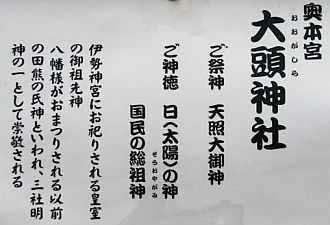 奥本宮
大頭神社
おおがしら
ご祭神 天照大御神
ご神徳 日(太陽)の神
国民の総祖神
そうおやがみ
伊勢神宮にお祀りされる皇室
の御祖先神
八幡様がおまつりされる以前
の田熊の氏神といわれ、三社明
神の一として崇敬される